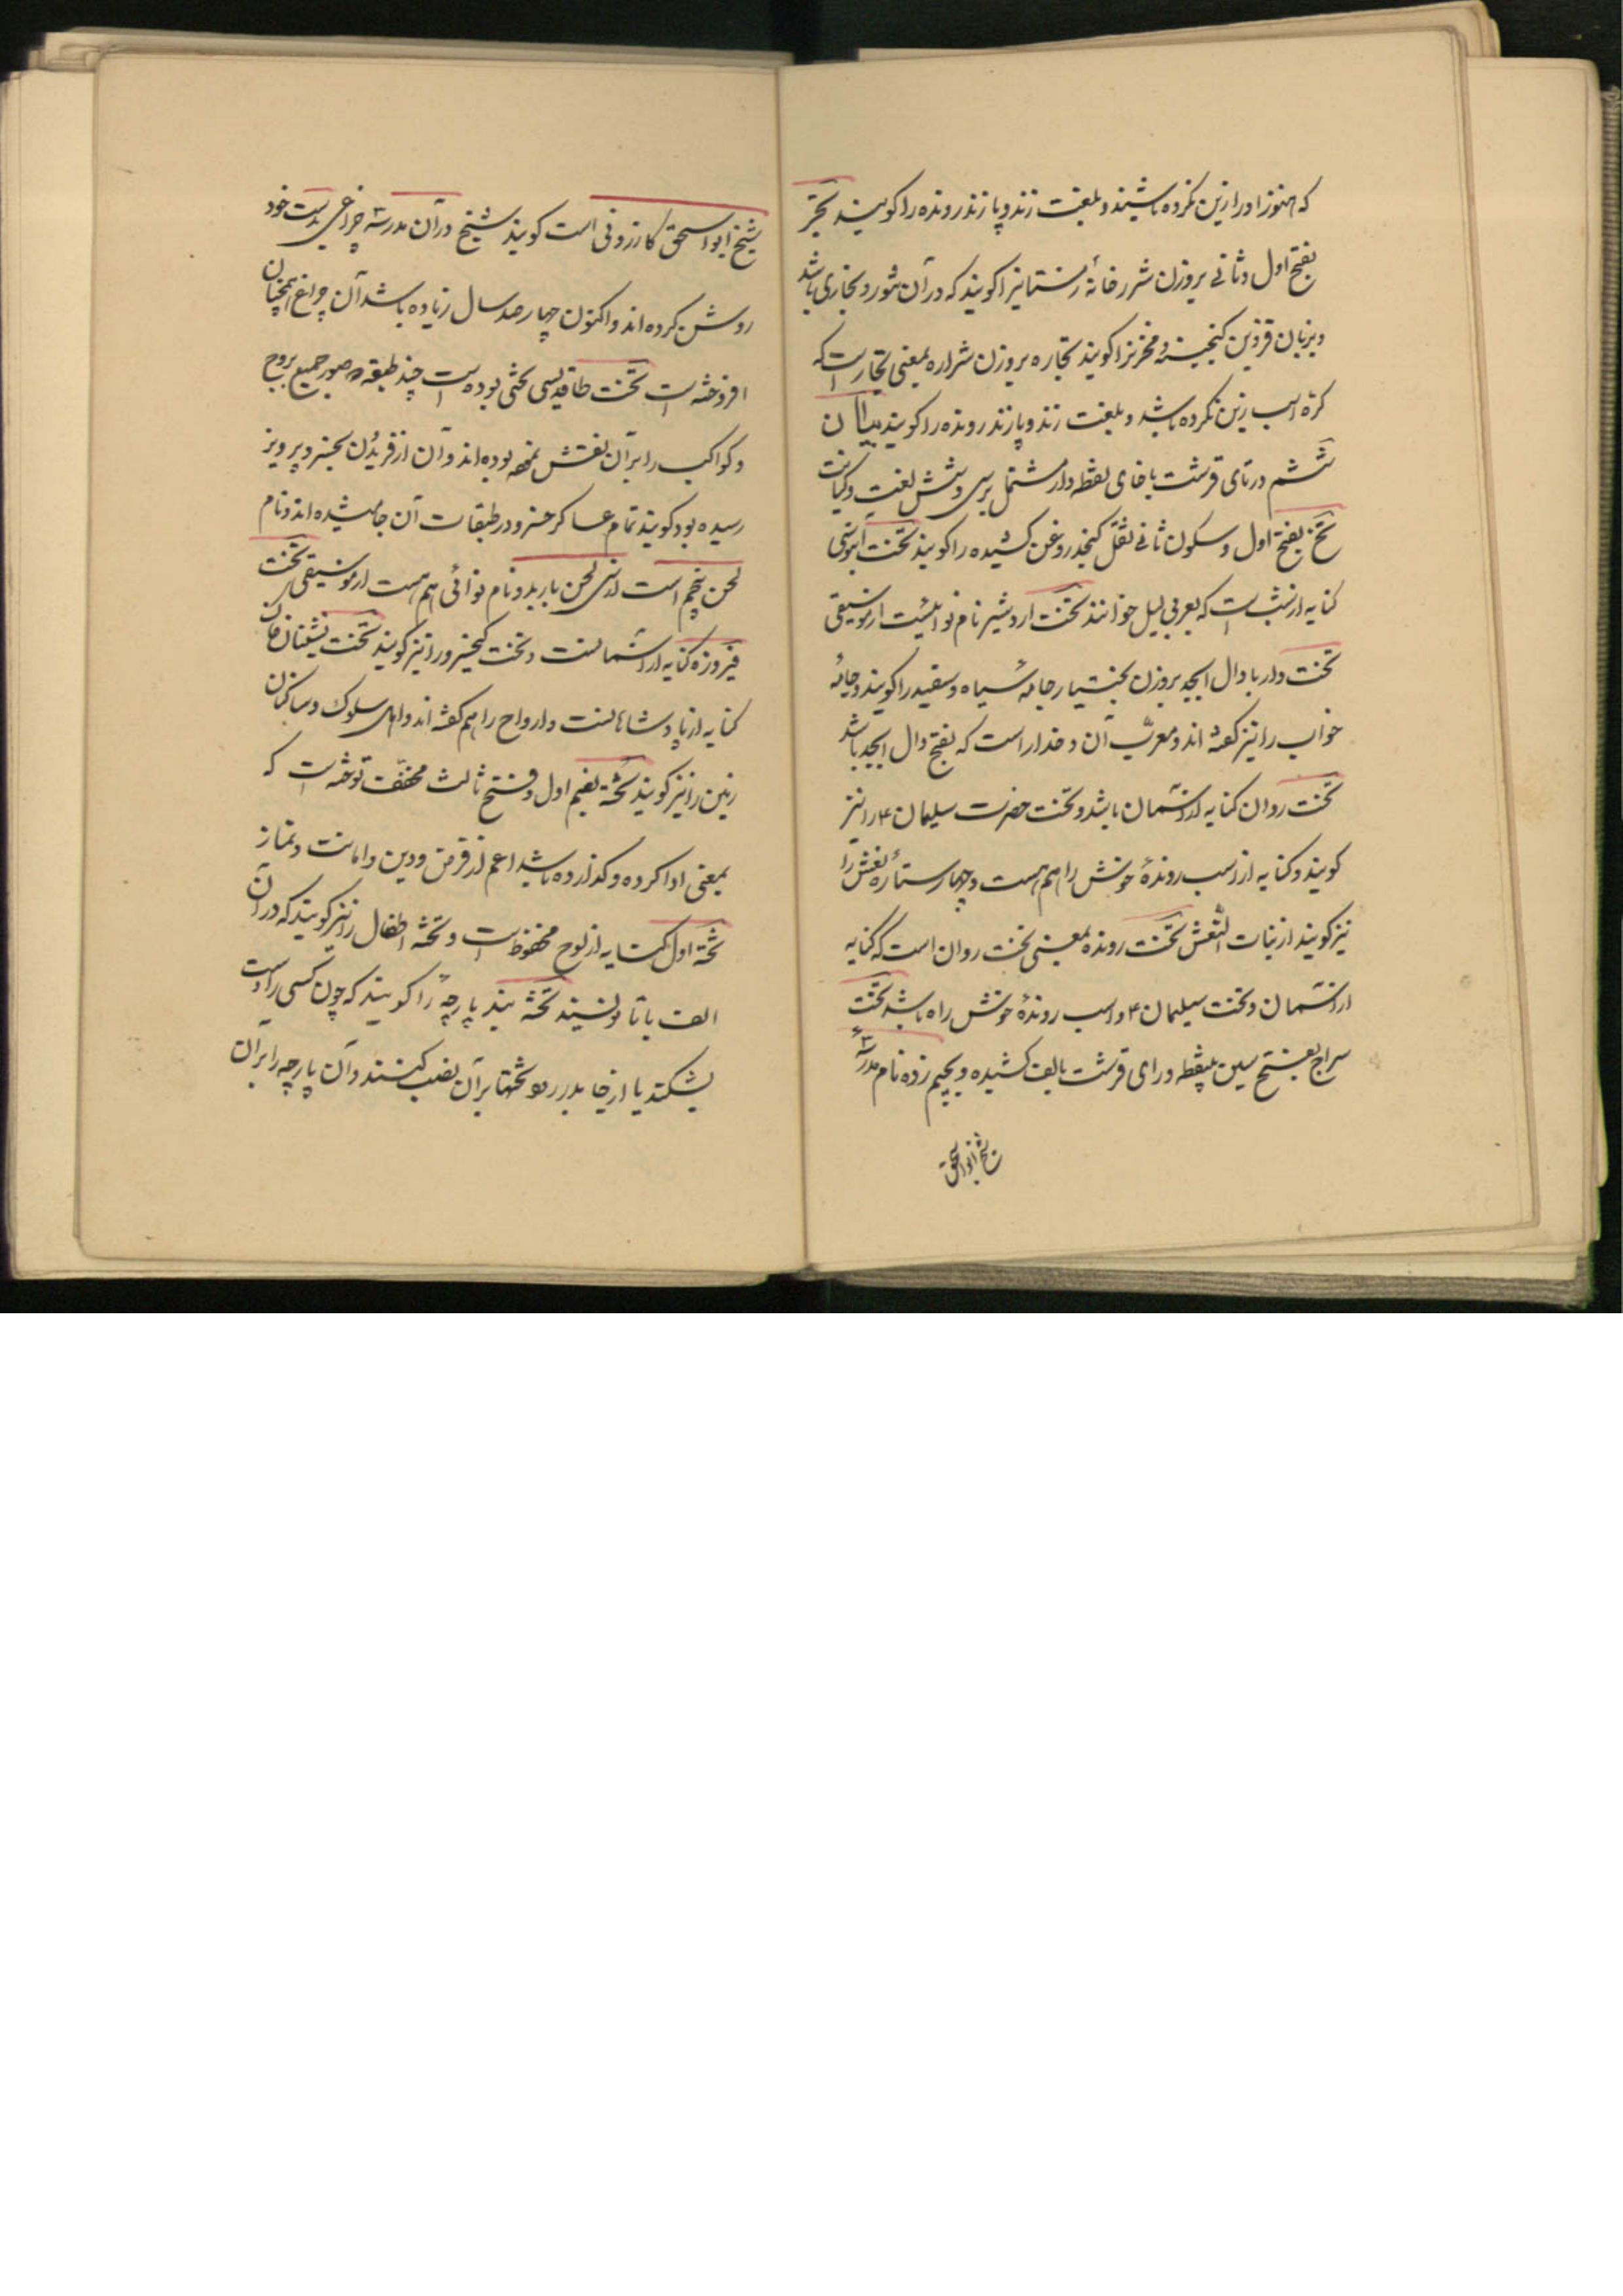 که هنوز او را زین نکرده باشند و بلغت زند و پازند رونده را کویند تجر
بفتح اول و ثانی بروزن شرر خانهٔ زمستانیرا کویند که در آن تنور و بخاری باشد
و بزبان قزوین کنجینه و مخزنرا کویند تجاره بروزن شراره بمعنی تجار است که
کره اسب زین نکرده باشد و بلغت زند و پازند رونده را کویند بیان
ششم در تای قرشت با خای نقطه دار مشتمل بر سی و شش لغت و کنایت
تخ بفتح اول و سکون ثانی ثفل کنجد روغن کشیده را کویند تخت آبنوسی
کنایه از شبست که بعربی لیل خوانند تخت اردشیر نام نوائیست از موسیقی
تخت دار با دال ابجد بروزن بختیار جامهٔ سیاه و سفید را کویند و جامهٔ
خواب را نیز کفته اند و معرّب آن دخدار است که بفتح دال ابجد باشد
تخت روان کنایه از آسمان باشد و تخت حضرت سلیمان ۴ را نیز
کویند و کنایه از اسب روندهٔ خوش راه هم هست و چهار ستارهٔ نعش را
نیز کویند از بنات النّعش تخت رونده بمعنی تخت روان است که کنایه
از آسمان و تخت سیلیمان ۴ و اسب روندهٔ خوش راه باشد تخت
سراج بفتح سین بینقطه و رای قرشت بالف کشیده و بجیم زده نام مدرسهٔ
شیخ ابواسحق
شیخ ابواسحق کازرونی است کویند شیخ در آن مدرسه چراغی بدست خود
روشن کرده اند و اکنون چهارصد سال زیاده باشد آن چراغ همچنان
افروخته است تخت طاقدیسی تختی بوده است چند طبقه و صور جمیع بروج
و کواکب را بر آن نقش نموده بوده اند و آن از فریدُن بخسرو پرویز
رسیده بود کویند تمام عساکر خسرو در طبقات آن جا میشده اند و نام
لحن پنجم است از سی لحن باربد و نام نوائی هم هست از موسیقی تخت
فیروزه کنایه از آسمانست و تخت کیخسرو را نیز کویند تخت نشینان خاک
کنایه از پادشاهانست و ارواح را هم کفته اند و اهل سلوک و ساکنان
زمین را نیز کویند تخته بضم اول و فتح ثالث مخفّف توخته است که
بمعنی ادا کرده و کذارده باشد اعم از قرض و دین و امانت و نماز
تخته اول کنایه از لوح محفوظ است و تخته اطفال را نیز کویند که در آن
الف با تا نویسند تخته بند پارچهٔ را کویند که چون کسی را دست
بشکند یا از جا بدر رود تختها بر آن نصب کنند و آن پارچه را بر آن